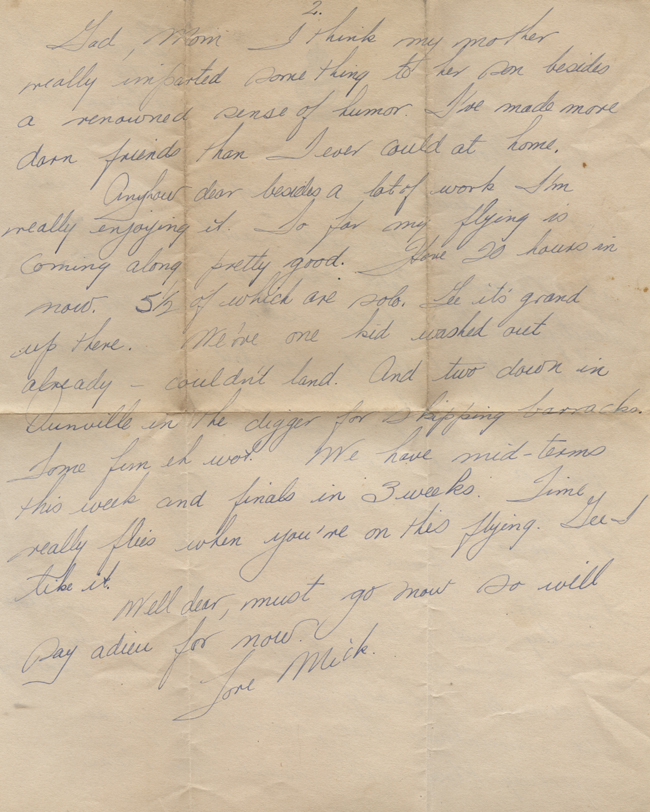 2.
Gad, Mom I think my mother
really imparted something to her son besides
a renowned sense of humor. I've made more
darn friends than I ever could at home.
Anyhow dear besides a lot of work I'm
really enjoying it. So far my flying is
coming along pretty good. Have 20 hours in
now. 5½ of which are solo. Gee it's grand
up there. We've one kid washed out
already - couldn't land. And two down in
Dunnville in the digger for skipping barracks.
Some fun eh wot. We have mid-terms
this week and finals in 3 weeks. Time
really flies when you're on this flying. Gee I
like it.
Well dear, must go now so will
say adieu for now.
Love Mick.